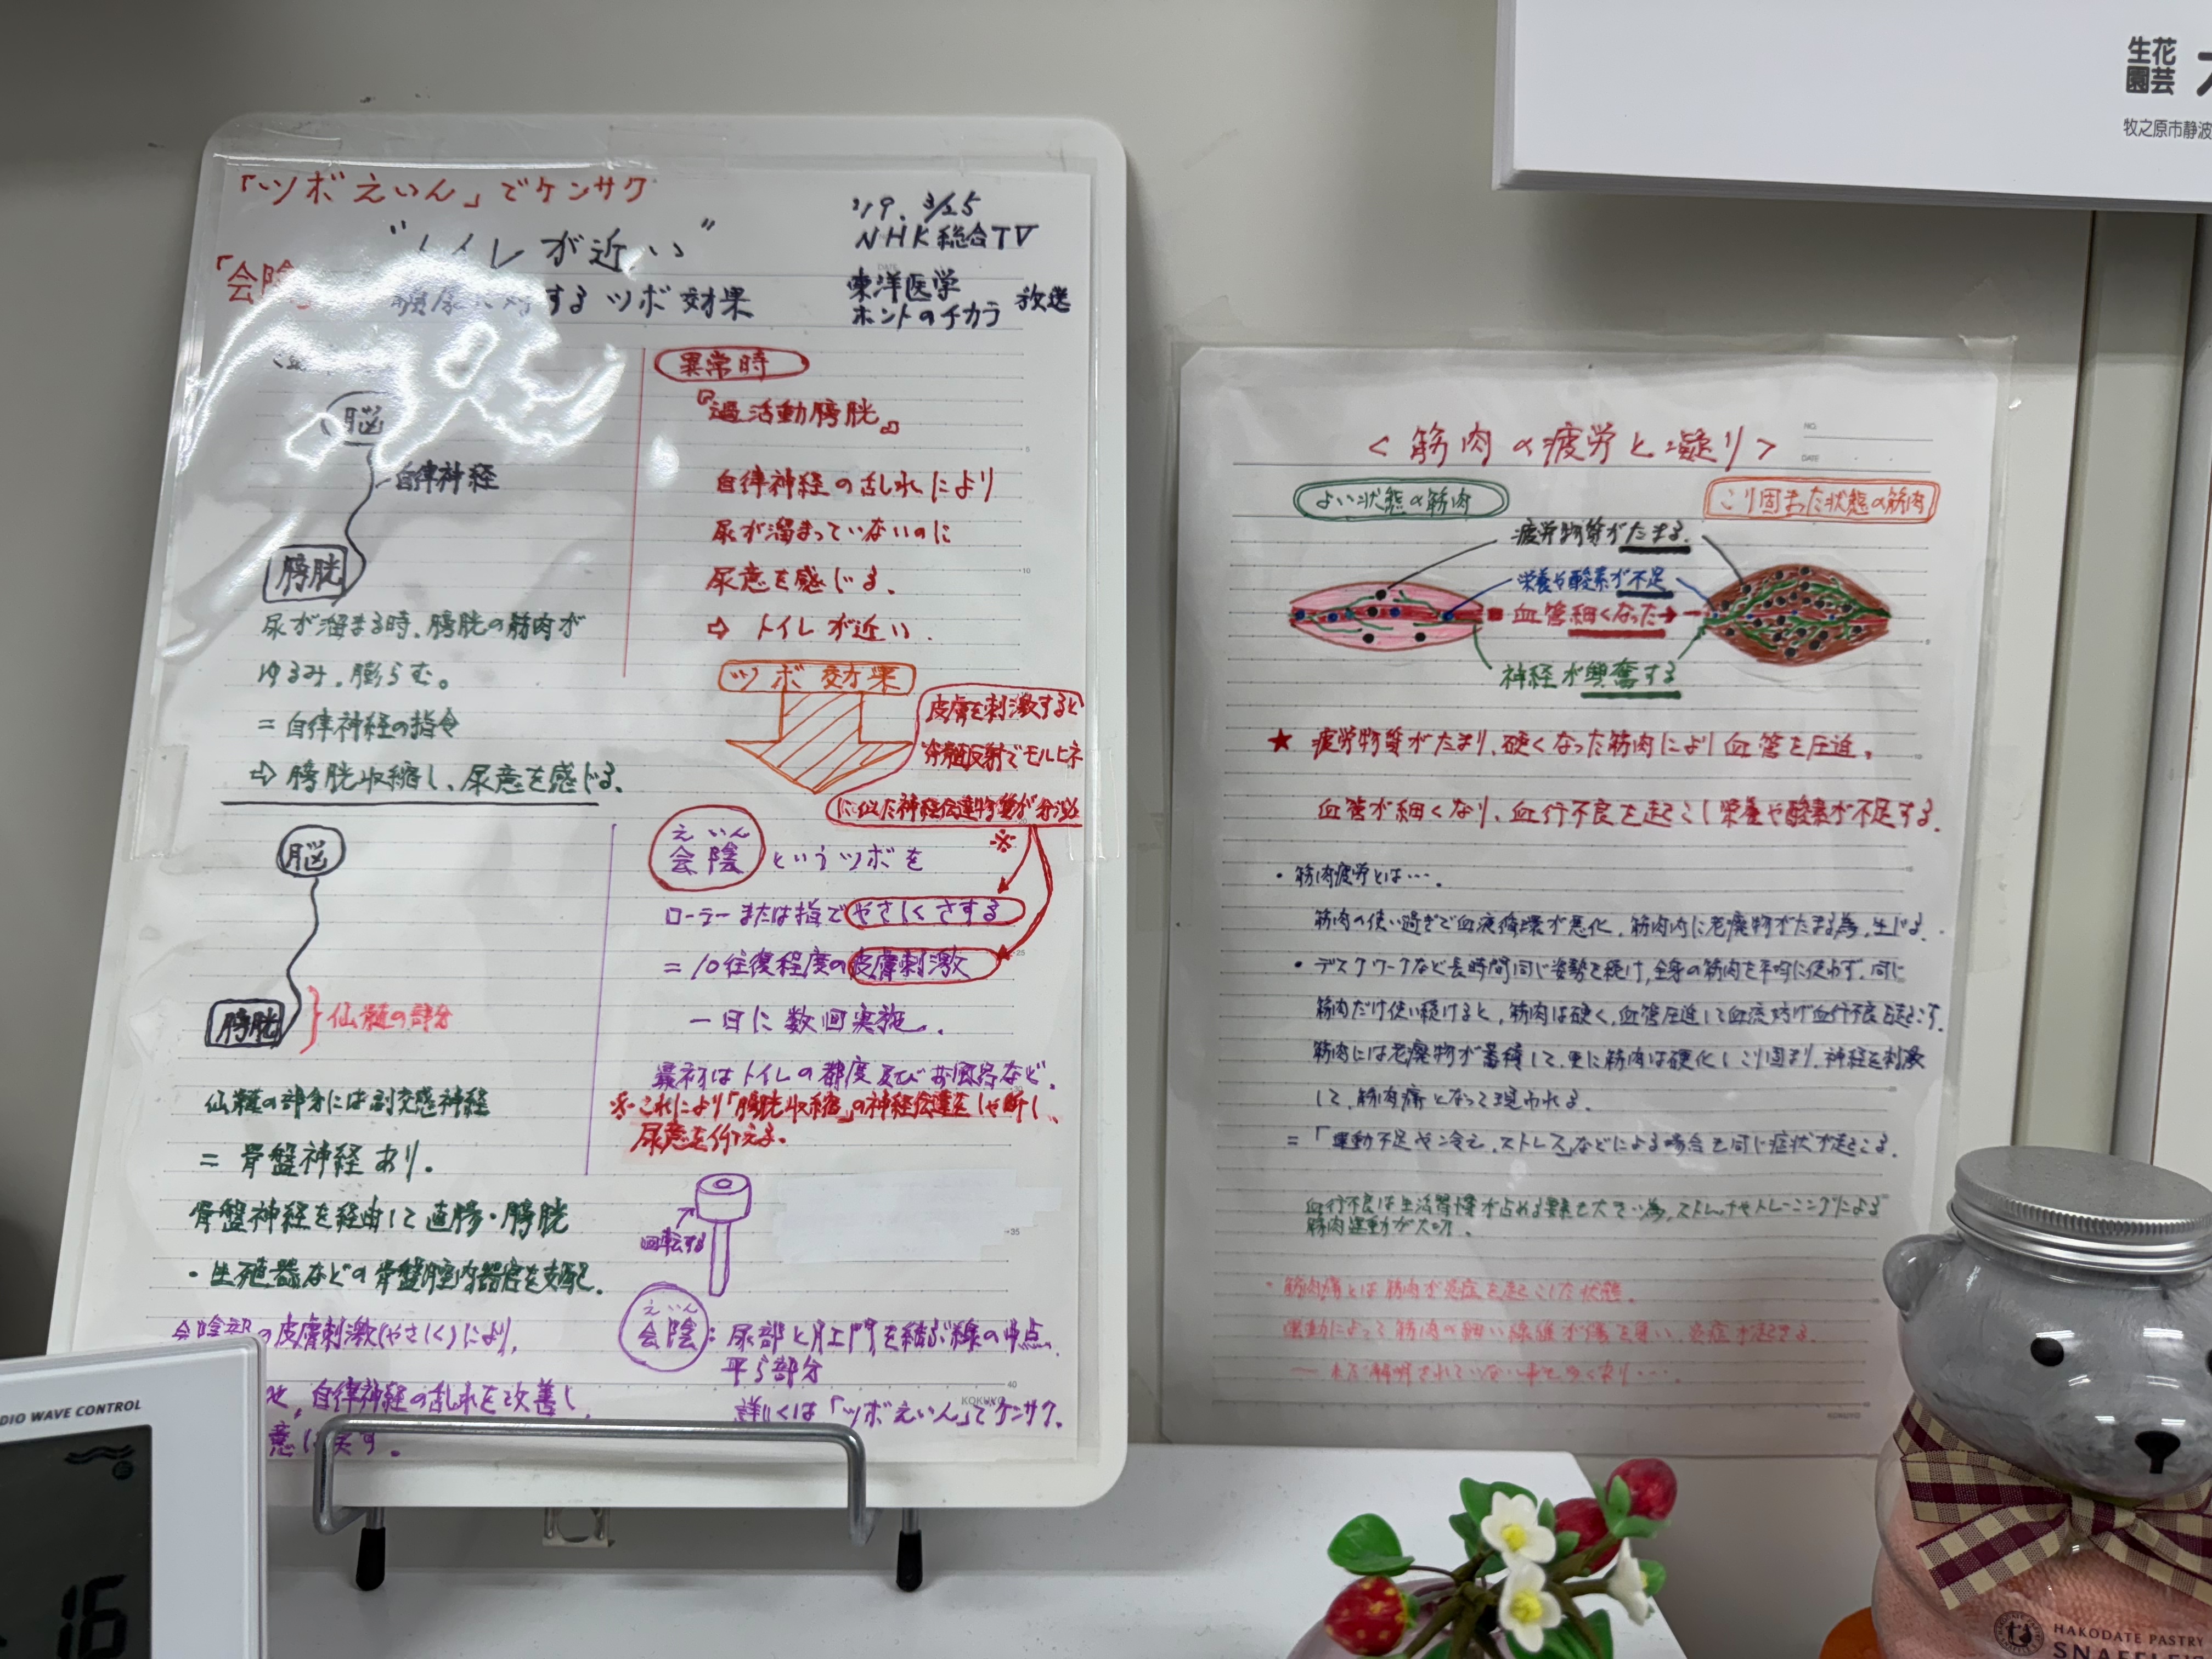 「ツボえいん」でケンサク
"トイレが近い"
「会陰
するツボ効果
'19. 3/25
NHK総合TV
東洋医学
ホントのチカラ 放送
脳
自律神経
膀胱
尿が溜まる時、膀胱の筋肉が
ゆるみ、膨らむ。
=自律神経の指令
⇨膀胱収縮し、尿意を感じる。
異常時
『過活動膀胱』
自律神経の乱れにより
尿が溜まっていないのに
尿意を感じる。
⇨ トイレが近い.
ツボ効果
皮膚を刺激すると
脊髄反射でモルヒネ
に似た神経伝達物質が分泌
※
脳
膀胱
仙髄の部分
仙髄の部分には副交感神経
= 骨盤神経あり.
骨盤神経を経由して直腸・膀胱
・生殖器などの骨盤腔内器官を支配.
会陰部の皮膚刺激(やさしく)により,
自律神経の乱れを改善し
えいん
会陰というツボを
ローラーまたは指でやさしくさする
=10往復程度の皮膚刺激
一日に数回実施.
最初はトイレの都度及びお風呂など.
※これにより「膀胱収縮」の神経伝達をしゃ断し、
尿意を抑える.
回転する
えいん
会陰:尿部と肛門を結ぶ線の中点.
平ら部分
詳しくは「ツボえいん」でケンサク.
KOKUYO
<筋肉の疲労と凝り>
NO.
DATE
よい状態の筋肉
こり固まった状態の筋肉
疲労物質がたまる.
栄養や酸素が不足
血管細くなった→
神経が興奮する
★ 疲労物質がたまり、硬くなった筋肉により血管を圧迫。
血管が細くなり、血行不良を起こし栄養や酸素が不足する.
・筋肉疲労とは….
筋肉の使い過ぎで血液循環が悪化、筋肉内に老廃物がたまる為、生じる.
・デスクワークなど長時間同じ姿勢で続け,全身の筋肉を平均に使わず、同じ
筋肉だけ使い続けると、筋肉は硬く、血管圧迫して血流妨げ血行不良を起こす.
筋肉には老廃物が蓄積して、更に筋肉は硬化しこり固まり、神経を刺激
して、筋肉痛となって現われる.
=「運動不足や冷え、ストレス」などによる場合も同じ症状が起こる.
血行不良は生活習慣が占める要素も大きい為,ストレッチやトレーニングによる
筋肉運動が大切.
・筋肉痛とは筋肉が炎症を起こした状態.
運動によって筋肉の細い線維が傷を負い、炎症が起きる.
― まだ解明されていない事も多くあり….
KOKUYO
生花
園芸
牧之原市静波
DIO WAVE CONTROL
16
HAKODATE PASTRY
SNAFFLE'S